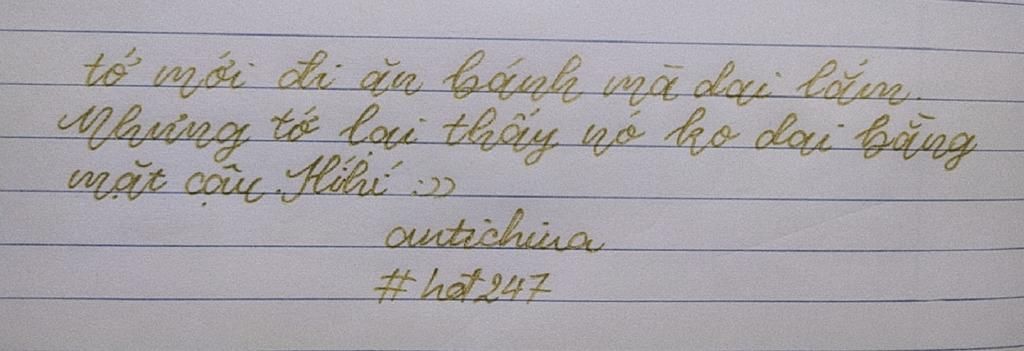 tớ mới đi ăn bánh mà dai lắm.
Nhưng tớ lại thấy nó ko dai bằng
mặt cậu. Hihi :))
antichina
#hot247